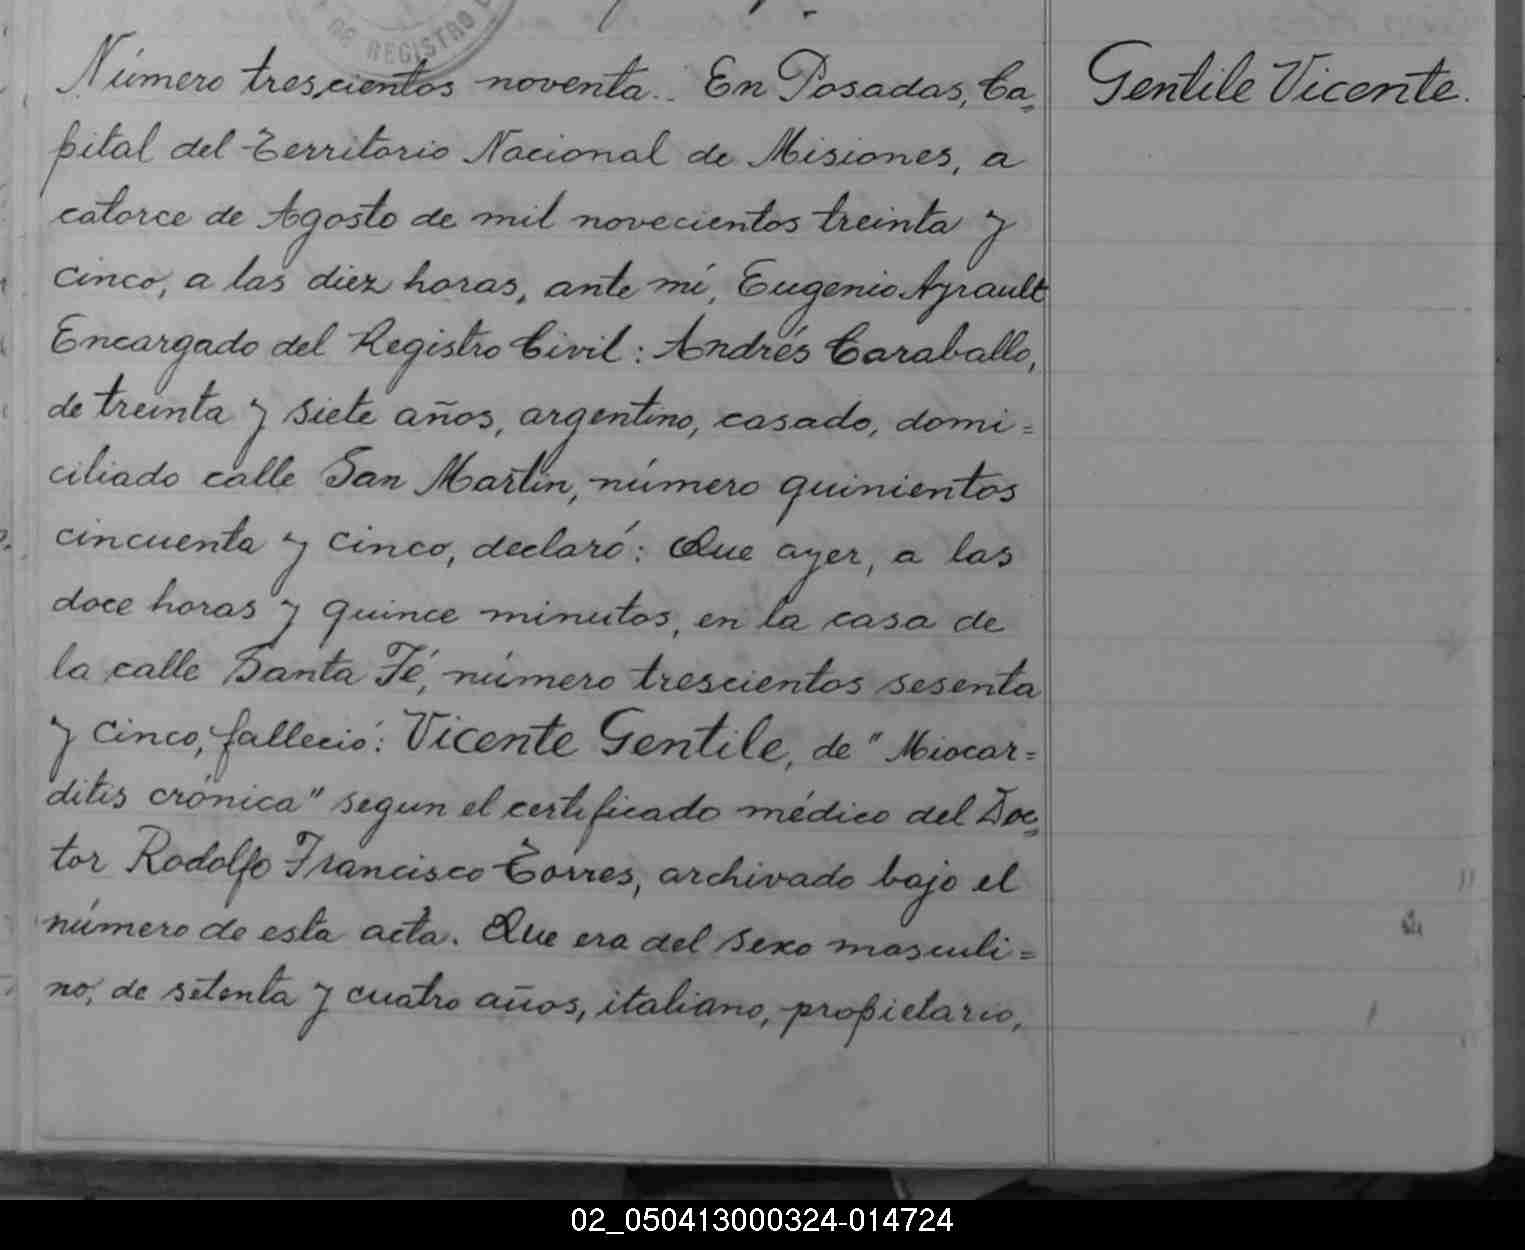 DE REGISTRO
Número trescientos noventa. En Posadas, Ca„
pital del Territorio Nacional de Misiones, a
catorce de Agosto de mil novecientos treinta y
cinco, a las diez horas, ante mí, Eugenio Ayrault
Encargado del Registro Civil: Andrés Caraballo,
de treinta y siete años, argentino, casado, domi=
ciliado calle San Martin, número quinientos
cincuenta y cinco, declaró: Que ayer, a las
doce horas y quince minutos, en la casa de
la calle Santa Fé, número trescientos sesenta
y cinco, falleció: Vicente Gentile, de "Miocar=
ditis crónica" segun el certificado médico del Doc„
tor Rodolfo Francisco Torres, archivado bajo el
número de esta acta. Que era del sexo masculi=
no, de setenta y cuatro años, italiano, propietario,
Gentile Vicente.
02_050413000324-014724